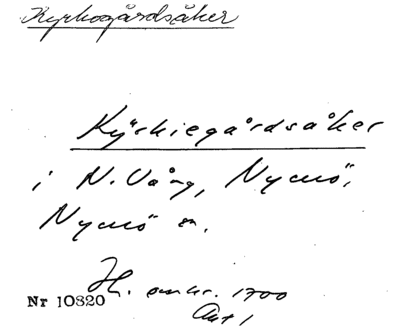 Kyrkogårdsåker
Kÿrkiegårdsåker
i N. Vång, Nymö,
Nymö sn.
H. omkr. 1700
Nr 10820
Akt 1